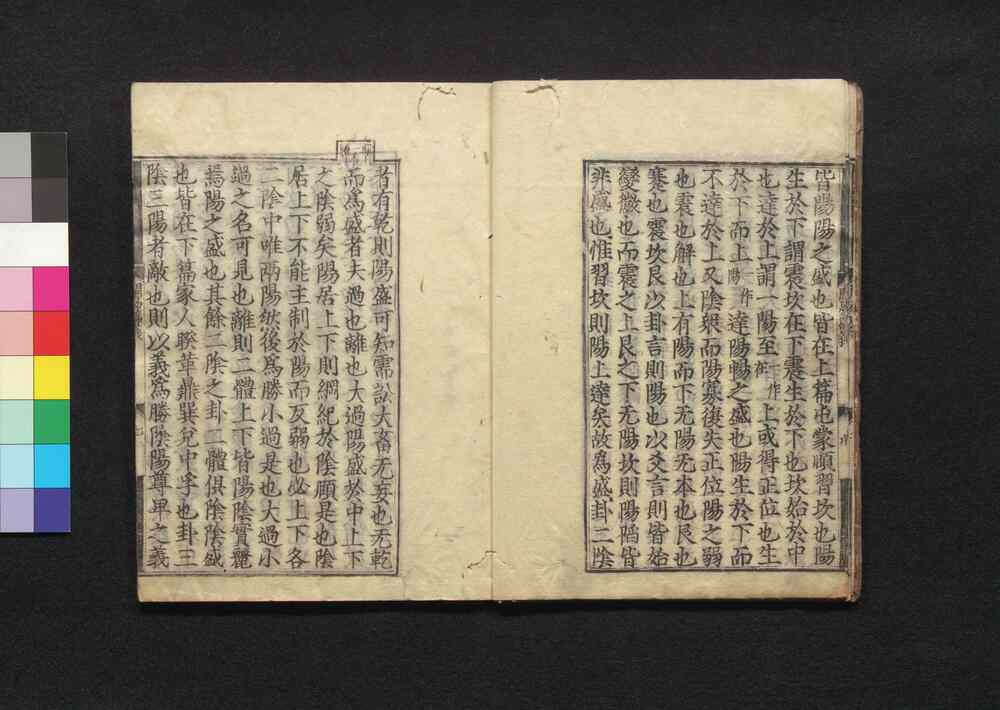 皆陽陽之盛也皆在上篇屯蒙頤習坎也陽
生於下謂震坎在下震生於下也坎始於中
也達於上謂一陽至一作在上或得正位也生
於下而上一作陽達陽暢之盛也陽生於下而
不達於上又陰衆而陽寡復失正位陽之弱
也震也解也上有陽而下无陽无本也艮也
蹇也震坎艮以卦言則陽也以爻言則皆始
變微也而震之上艮之下无陽坎則陽陷皆
非盛也惟習坎則陽上達矣故爲盛卦二陰
者有乾則陽盛可知需訟大畜无妄也无乾
而爲盛者夫過也離也大過陽盛於中上下
之陰弱矣陽居上下則綱紀於陰頤是也陰
居上下不能主制於陽而反弱也必上下各
二陰中唯兩陽然後爲勝小過是也大過小
過之名可見也離則二體上下皆陽陰實麗
焉陽之盛也其餘二陰之卦二體俱陰陰盛
也皆在下篇家人睽革鼎巽兌中孚也卦三
陰三陽者敵也則以義爲勝陰陽尊卑之義